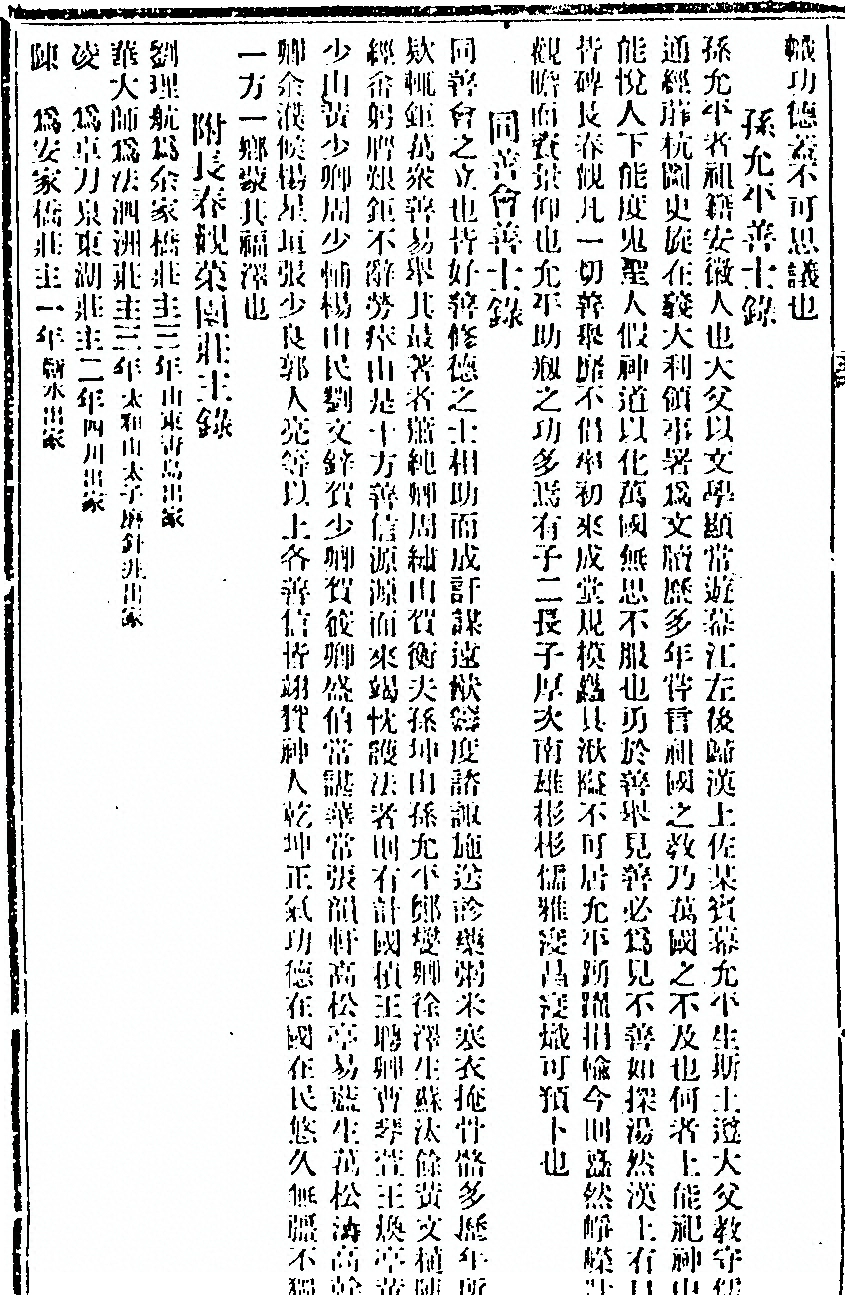 幟功德蓋不可思議也
孫允平善士錄
孫允平者祖籍安徽人也大父以文學顯常遊幕江左後歸漢上佐某賓幕允平生斯土遵大父教守儒
通經 枕圖史旋在義大利領事署爲文牘歷多年嘗言祖國之教乃萬國之不及也何者上能祀神中
能悅人下能度鬼聖人假神道以化萬國無思不服也勇於善舉見善必爲見不善如探湯然漢上有
皆碑長春觀凡一切善舉靡不倡率初來成堂規模 具湫隘不可居允平踴躍捐輸今則 然崢嶸
觀瞻而資景仰也允平助 之功多焉有子二長子厚次南雄彬彬儒雅 昌 熾可預卜也
同善會善士錄
同善會之立也皆好善修德之士相助而成訏謀遠猷 度諮諏施送診藥粥米寒衣掩骨骼多歷年所
欵輒鉅萬衆善易舉其最著者蕭純卿周繡山賀衡夫孫坤山孫允平鄭燮卿徐澤生蘇汰餘黃文植陳
經畬躬膺艱鉅不辭勞瘁由是十方善信源源而來竭忱護法者則有計國楨王聘卿曹琴萱王煥亭
少山 少卿周少輔楊山民劉文 賀少卿賀 卿盛伯常諶華常張韻軒高松亭易藍生萬松濤高
卿余濮候楊星垣張少良郭人亮等以上各善信皆翊贊神人乾坤正氣功德在國在民悠久無疆不獨
一方一鄉蒙其福澤也
附長春觀菜園莊主錄
劉理航爲余家橋莊主三年山東青島出家
華大師爲法泗洲莊主三年太和山太子磨針井出家
凌　爲卓刀泉東湖莊主二年四川出家
陳　爲安家橋莊主一年 水出家